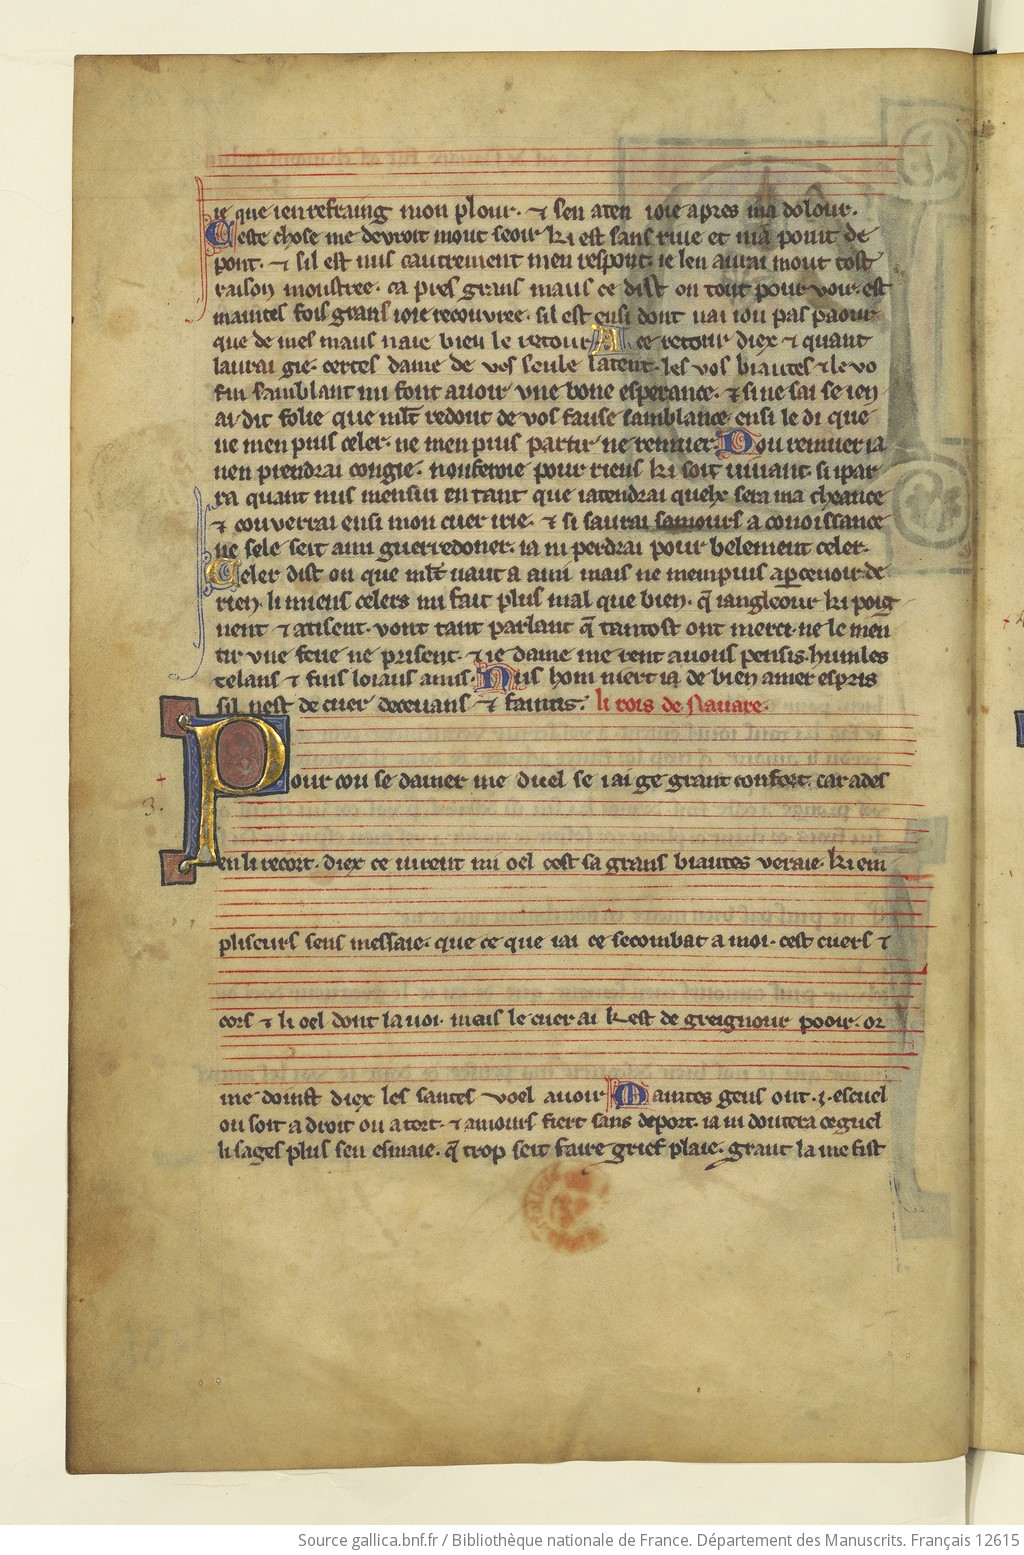 ie que ienrefraing mon plour. ⁊ sen aten ioie apres ma dolour.
Ceste chose me devroit mout seoir ki est sans rive et na point de
pont. ⁊ sil est nus cautrement men respont. ie len aurai mout tost
raison moustree. ca pres grans maus ce dist on tout pour voir. est
maintes fois grans ioie recouvree. sil est ensi dont nai iou pas paour
que de mes maus naie bien le retour A ce retour diex ⁊ quant
laurai gie. certes dame de vos seule latent. les vos biautes ⁊ le vo
fin samblant mi font avoir une bone esperance. ⁊ sine sai se ien
ai dit folie que mlt redout de vos fause samblance ensi le di que
ne men puis celer. ne men puis partir ne remuer. Dou remuer ia
nen prendrai congie. nonferoie pour riens ki soit vivant. si ipar
ra quant nus mensui en tant que iatendrai quelx sera ma cheance
⁊ couverrai ensi mon cuer irie. ⁊ si saurai samours a conoissance
ne sele seit ami guerredoner. ia ni perdrai pour belement celer.
Celer dist on que mlt vaut a ami mais ne mempuis apcevoir de
rien. li miens celers mi fait plus mal que bien. q̃ iangleour ki poig
nent ⁊ atisent. vont tant parlant q̃ tantost ont merci. ne le men
tir vne feve ne prisent. ⁊ ie dame me rent a vous pensis. humles
celans ⁊ fins loiaus amis. Nus hom niert ia de bien amer espris
sil nest de cuer decevans ⁊ faintis. li rois de Navare.
Pour cou se damer me duel se iai ge grant confort. car ades
3.
en li recort. diex ce virent mi oel cest sa grans biautes veraie. ki em
pliseurs sens messaie. que ce que iai ce secombat a moi. cest cuers ⁊
cors ⁊ li oel dont la voi. mais le cuer ai k est de greignour pooir. or
me doinst diex les santes voel avoir Maintes gens ont .i. escuel
ou soit a droit ou a tort. ⁊ amours fiert sans deport. ia ni doutera orguel
li sages plus sen esmaie. q̃ trop seit faire grief plaie. grant la me fist
Source gallica.bnf.fr / Bibliothèque nationale de France. Département des Manuscrits. Français 12615